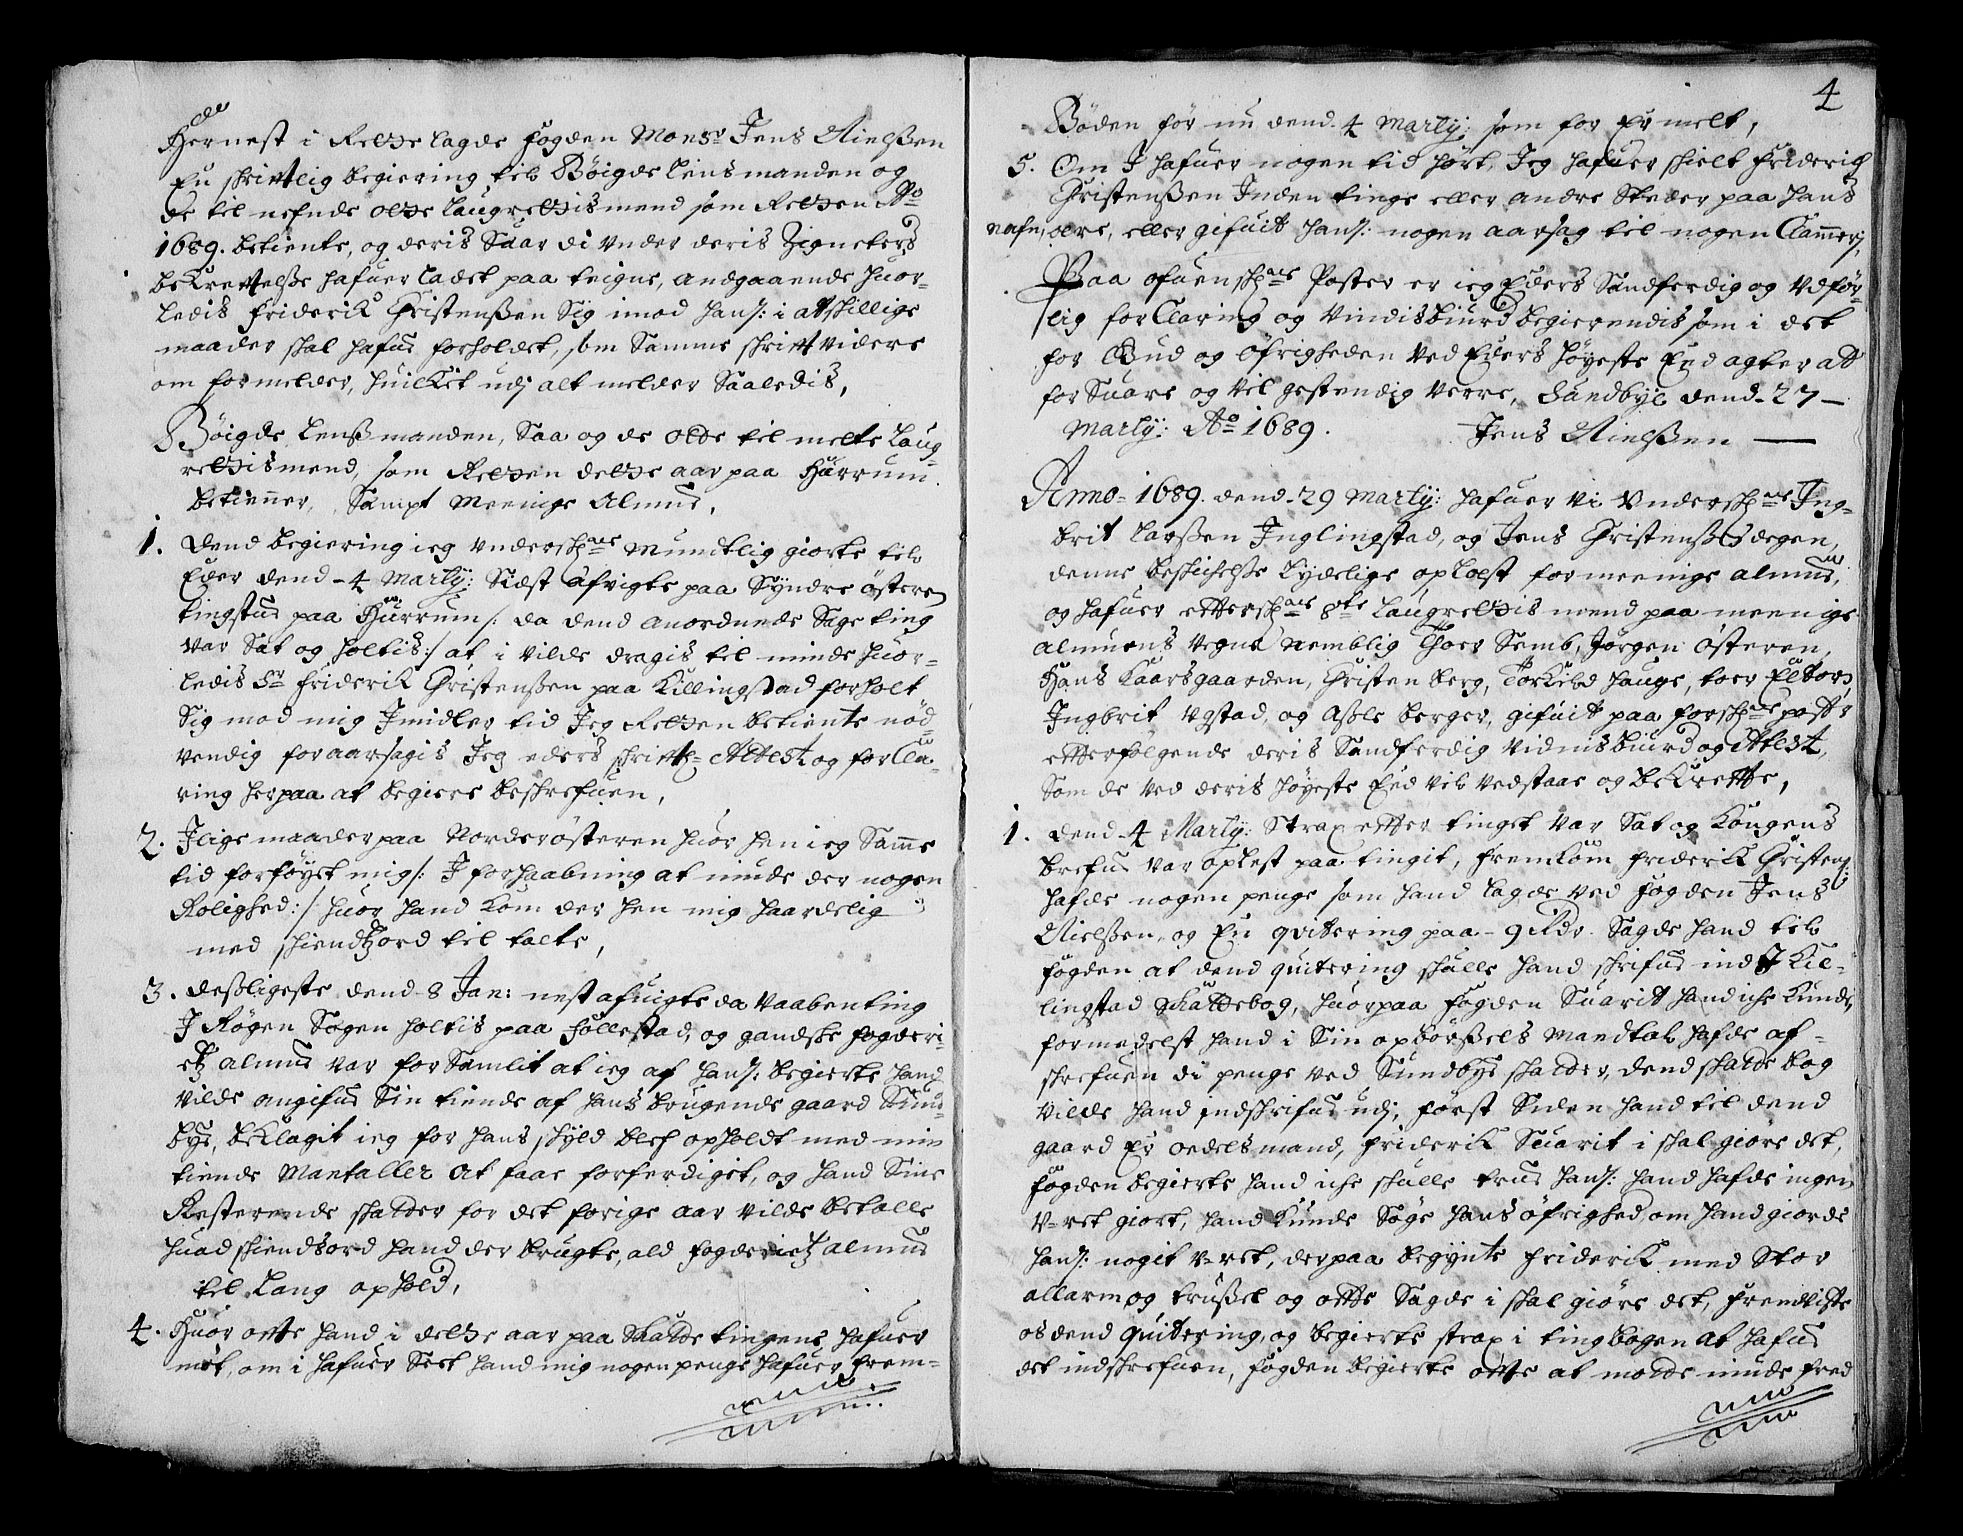 Hernest i Retten lagde fogden Monsr Jens Nielsßen
En schriftlig begiering til Bøigde Lensmanden og
de til nefnde otte Laugrettismend som Retten Ao
1689. betiente, og deris Suar di Vnder deris Zigneters
bekreftelsse hafuer ladet paa teigne, andgaaende huor-
ledis friderik Christensßen Sig imod hans: i atskillige
maader skal hafue forholdet, som Samme skrift videre
om formelder, huilket udj alt melder Saaledis,
Bøigde Lenßmanden, Saa og de otte til melte Laug-
rettismend, som Retten dette aar paa Hurrum
betienner, Sampt Meenige Almue,
1. Dend begiering ieg Vnderschne Mundtlig giorte til
Eder dend 4 Martij: Sidst afvigte paa Syndre østeren
tingstue paa Hurrum /: da dend anordnede Sage ting
Var Sat og holtis :/ at i vilde dragis til minde huor-
ledis Sr friderik Christensßen paa Killingstad forholt
Sig mod mig Imidler tid Jeg Retten betiente nød-
vendig foraarsagis Jeg eders skriftl= Attest og forCla-
ring herpaa at begiere beskrefuen,
2. Jlige maader paa Norderøsteren huor hen ieg Samme
tid forføyet mig /: J forhaabning at niude der nogen
Rolighed :/ huor hand kom der hen mig haardelig
med skiendtzord til talte,
3. desßligeste dend 8 Jan: nest afuigte da Vaabenting
J Røgen Sogen holtis paa follestad, og gandske fogderi-
etz almue Var forSamlit at ieg af hans: begierte hand
Vilde angifue Sin tiende af hans brugende gaard Sund-
bye, beklagit ieg for hans skyld blef opholdt med min
tiende Mantaller at faae forferdiget, og hand Sine
Resterende skatter for det forige aar Vilde betalle
huad skiendsord hand der brugte, ald fogderietz almue
til Lang ophold,
4. Huor ofte hand i dette aar paa Skatte tingene hafuer
mødt, om i hafuer Seet hand mig nogen penge hafuer frem-
4
Bøden før nu dend 4 Martij: som for Er melt,
5. Om J hafuer nogen tid hørt, Jeg hafuer skielt friderich
Christensßen Inden tinge eller andre Steder paa hans
nafn, ære, eller gifuit hans: nogen aarsag til nogen Clammerj,
Paa ofuenschne Poster er ieg Eders Sandferdig og Vdfør-
lig forClaring og Vindisbiurd begierendis som i det
for Gud og øfrigheden Ved Eders høyeste Eed agter att
forSuare og Vil gestendig Verre, Sundbye dend 27
Martij: Ao 1689. Jens Nielsßen
Anno 1689. dend 29 Martij: hafuer Vi Vnderschne Ing-
brit Larsßen Inglingstad, og Jens Christensßen degen,
denne beskichelsße Lydelige oplæst for meenige almue,
og hafuer etterschne 8te Laugrettis mend paa meenige
almuens Vegne Nemblig Thoer Semb, Jørgen østeren,
Hans Kaarsgaarden, Christen berg, Torkild hauge, toer Eltorn,
Ingbrit Vgstad, og Asßle berger, gifuit paa forschne poster
etterfølgende deris Sandferdig Vidnisbiurd og Attest,
Som de Ved deris høyeste Eed Vil Vedstaae og bekrefte,
1. dend 4 Martij: Strax etter tinget Var Sat og Kongens
brefue Var oplest paa tingit, fremkom friderik Christens:
hafde nogen penge som hand lagde Ved fogden Jens
Nielsßen, og En qvittering paa 9 Rdr. Sagde hand til
fogden at dend quitering skulle hand skrifue ind J Kil-
lingstad Skattebog, huorpaa fogden Suarit hand iche kunde,
formedelst hand i Sin opbørsßels Mandtal hafde at-
skrefuen di penge Ved Sundbye skatter, dend skatte bog
Vilde hand indskrifue udj, først Siden hand til dend
gaard Er oedelsmand, friderik Suarit i skal giøre det,
fogden begierte hand iche skulle true hans: hand hafde ingen
V-ret giort, hand kunde Søge hans øfrighed, om hand giorde
hans: nogit V-ret, derpaa begynte friderik med Stor
allarm og trusßel og ofte Sagde i skal giøre det, fremviste
os dend quitering, og begierte strax i tingbogen at hafue
det indskrefuen, fogden begierte ofte at motte niude fred